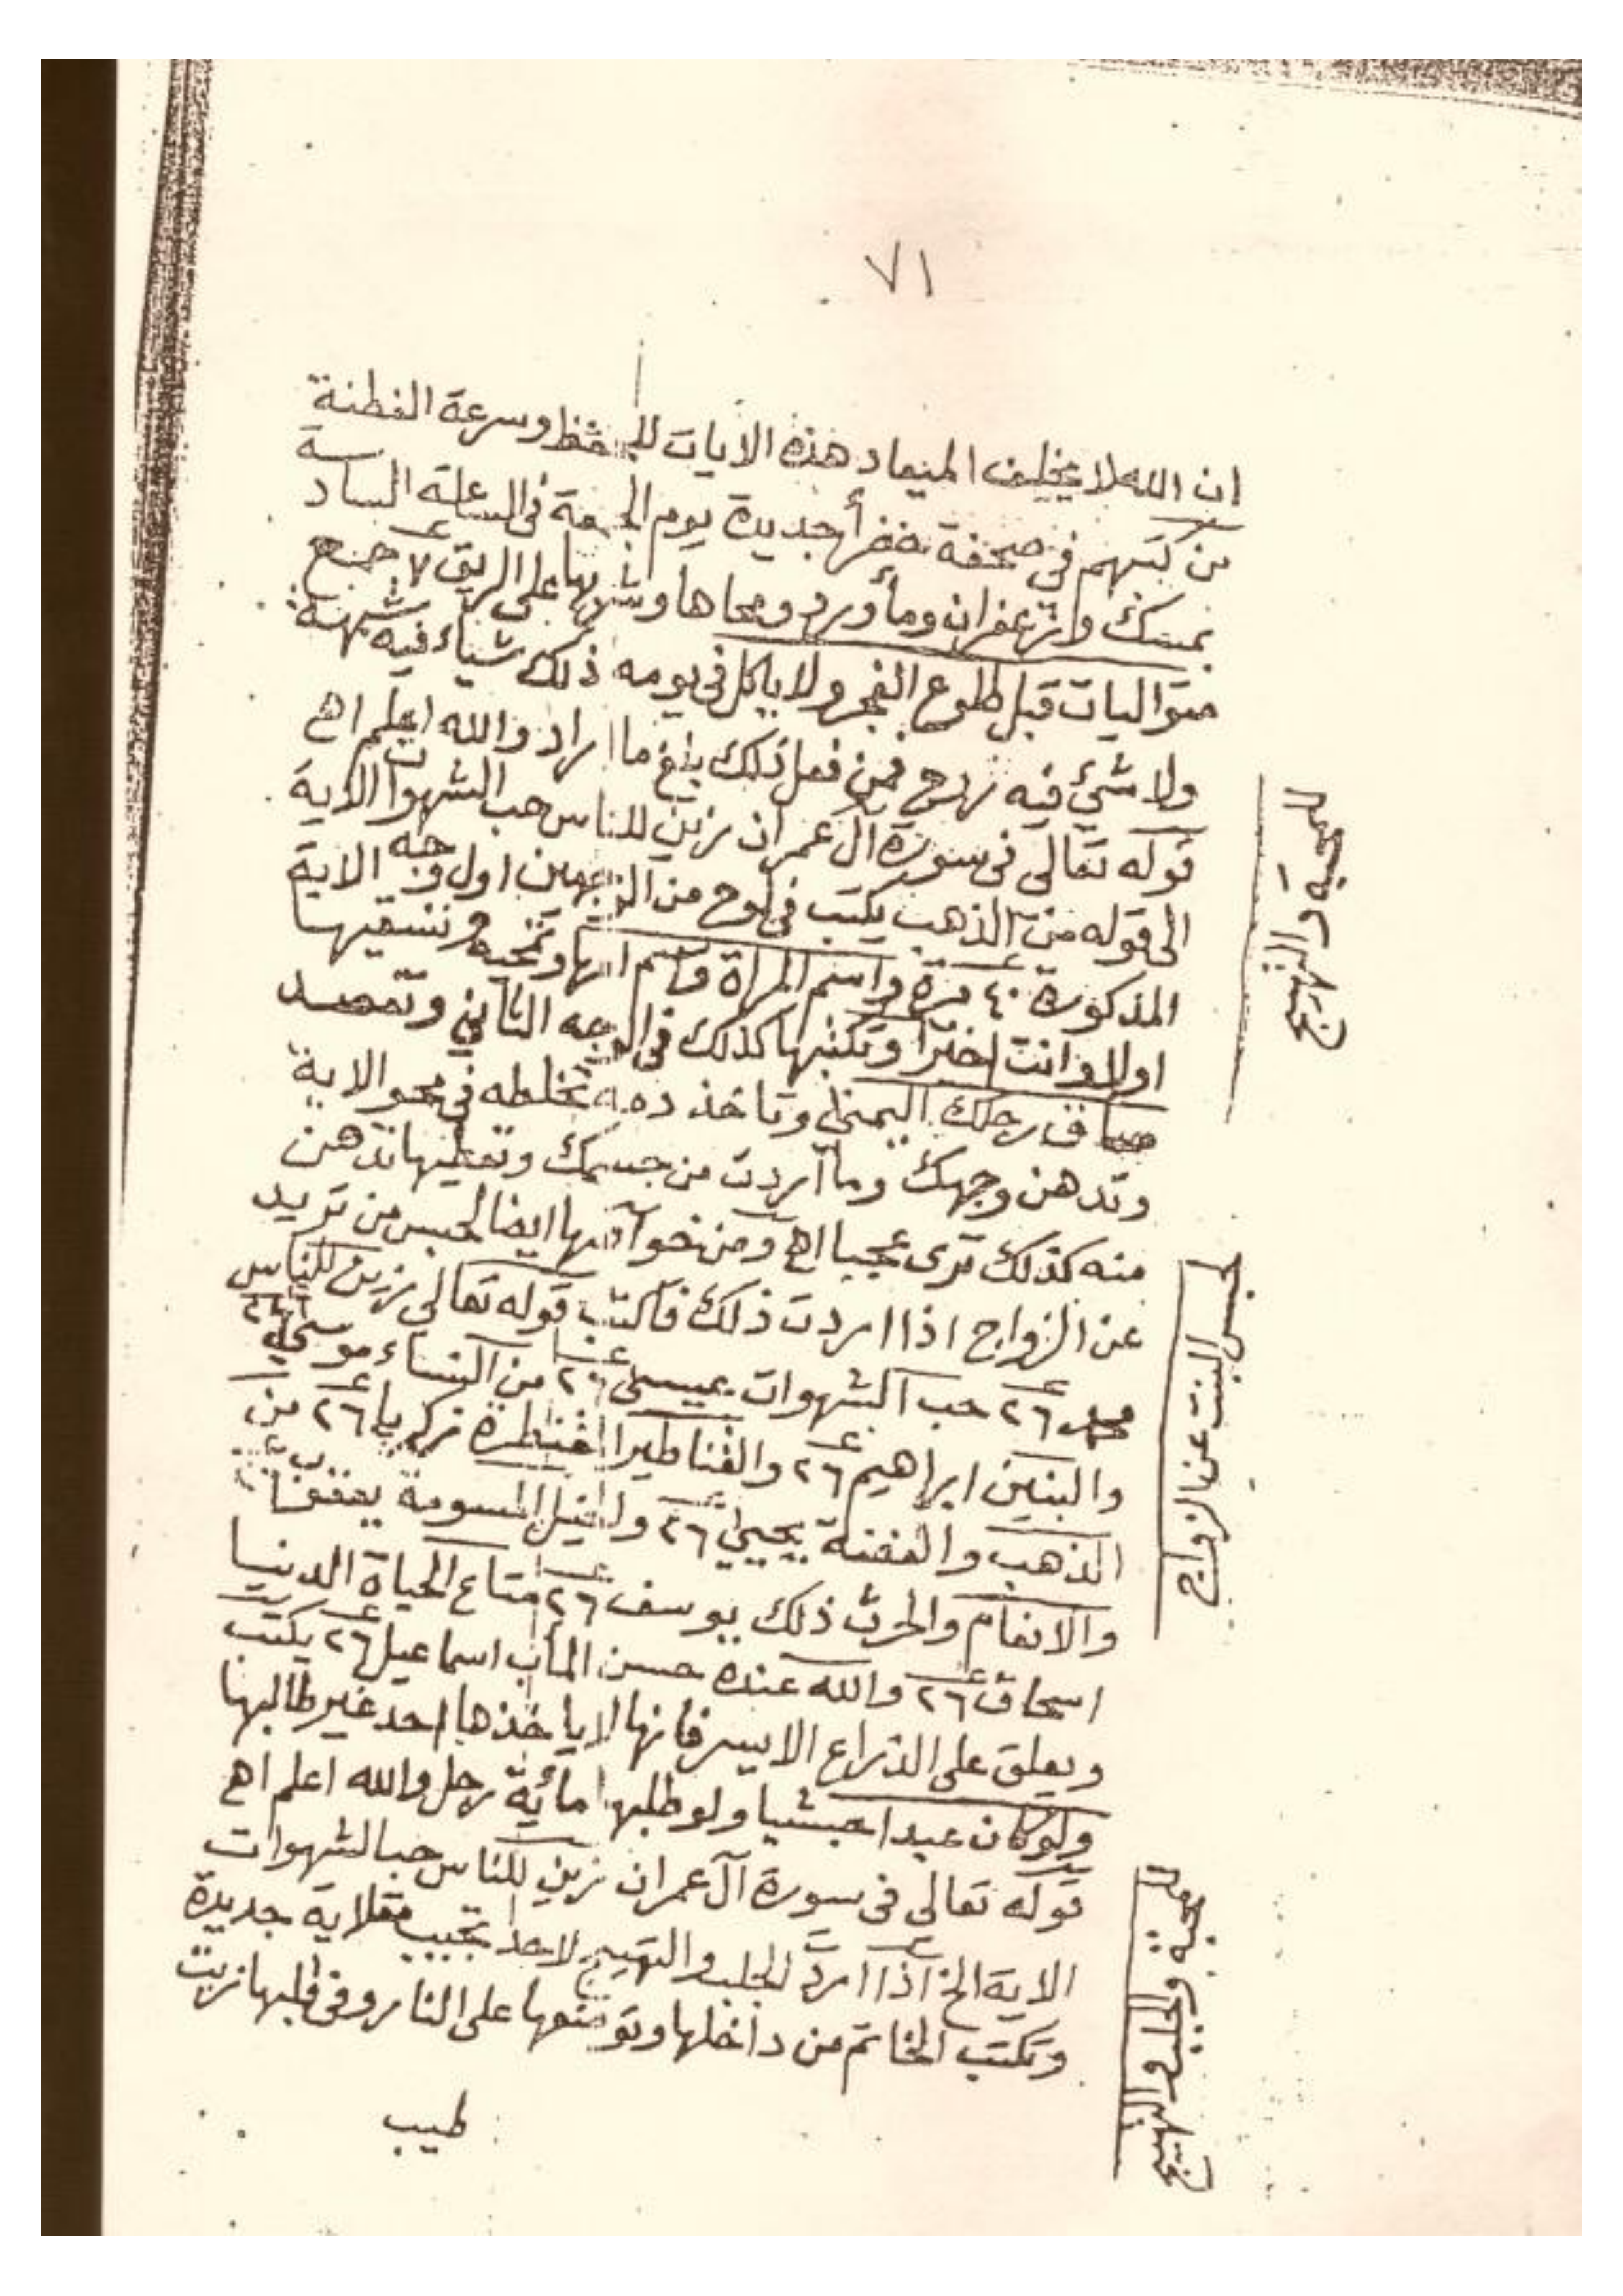 ٧١
ان الله لا يخلف الميعاد هذه الايات للحفظ وسرعة الفطنة
من كتبهم في صحفة خضرأ جديدة يوم الجمعة في الساعة السادسة
بمسك وزعفران ومأ ورد ومحاها وشربها على الريق ٧ جمع
متواليات قبل طلوع الفجر ولا ياكل في يومه ذلك شياء فيه شبهة
ولا شئ فيه روح فمن فعل ذلك بلغ ما اراد والله اعلم اهـ
قوله تعالى فى سورة آل عمران زين للناس حب الشهوات الاية
الى قوله من الذهب يكتب في لوح من اول وجه الاية
المذكورة ٤٠ مرة واسم المراة واسم امها وتمحيه وتسقيها
اولا وانت اخيرا وتكتبها كذلك في الوجه الثاني وتفصد
ساق رجلك اليمنى وتاخذ دمه تخلطه في محو الاية
وتدهن وجهك وما أردت من جسمك وتعطيها تدهن
منه كذلك ترى عجبا اهـ ومن خواصها ايضا لحبس من تريد
عن الزواج اذا اردت ذلك فاكتب قوله تعالى زين للناس
محمد ٢٦ حب الشهوات عيسى ٢٦ من النساء موسى ٢٦
والبنين ابراهيم ٢٦ والقناطير المقنطرة زكريا ٢٦ من
الذهب والفضة يحيى ٢٦ والخيل المسومة يعقوب
والانعام والحرث ذلك يوسف ٢٦ متاع الحياة الدنيا
اسحاق ٢٦ والله عنده حسن المأب اسماعيل ٢٦ يكتب
ويعلق على الذراع الايسر فانها لا ياخذها احد غير طالبها
ولو كان عبدا حبشيا ولو طلبها مأية رجل والله اعلم اهـ
قوله تعالى فى سورة آل عمران زين للناس حب الشهوات
الاية الخ اذا اردت الجلب والتهييج لاحد تجيب مقلاية جديدة
وتكتب الخاتم من داخلها وتوضعها على النار وفي قلبها زيت
طيب
للمحبة والتهييج
لحبس البنت عن الزواج
للمحبة والجلب والتهييج